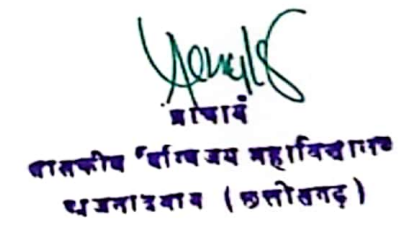 प्राचार्य
शासकीय दिग्विजय महाविद्यालय
राजनांदगांव (छत्तीसगढ़)